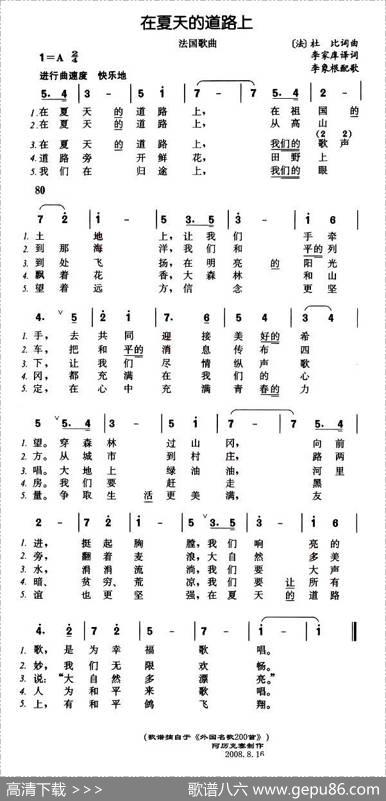 在夏天的道路上
法国歌曲
〔法〕杜 比词曲
李家庠译词
李象根配歌
1=A 2/4
进行曲速度 快乐地
1.在 夏 天 的 道 路 上, 在 祖 国 的
2.在 夏 天 的 道 路 上, 从 高 山
3.在 夏 天 的 道 路 上, 我们的 歌 声
4.道 路 旁 开 鲜 花, 田 野 上
5.我 们 在 归 途 上, 我们的 眼
80
1.土 地 上,让 我 们 手 牵
2.到 那 海 洋,我 们 和 平的 列
3.到 处 飞 扬,在 明 亮 的 阳 光
4.飘 着 花 香,大 森 林 和 山
5.望 着 远 方,信 念 更 坚
1.手, 去 共 同 迎 接 美 好的 希
2.车, 把 和 平的 消 息 传 布 四
3.下, 让 我 们 尽 情 纵 声 歌
4.冈, 都 充 满 在 我 们 的 心
5.定, 在 心 中 充 满 青 春的 力
1.望。穿 森 林 过 山 冈, 向 前
2.方。从 城 市 到 村 庄, 路 两
3.唱。大 地 上 绿 油 油, 河 里
4.房。我 们 要 赶 走 黑
5.量。争 取 生 活 更 美 满, 友
1.进, 挺 起 胸 膛,我 们 响 亮 的
2.旁, 翻 着 麦 浪,大 自 然 多 美
3.水, 涓 涓 流 淌,我 们 要 大 声
4.暗、 贫 穷、 荒 凉,我 们 要 让 所 有
5.谊 也 更 坚 强,在 夏 天 的 道 路
1.歌,是 为 幸 福 歌 唱。
2.妙,我 们 无 限 欢 畅。
3.说:“大 自 然 多 漂 亮。”
4.人 为 和 平 来 歌 唱。
5.上,有 和 平 鸽 飞 翔。
(歌谱摘自于《外国名歌200首》)
阿历克塞制作
2008.8.16
高清下载 >>>
歌谱八六 www.gepu86.com